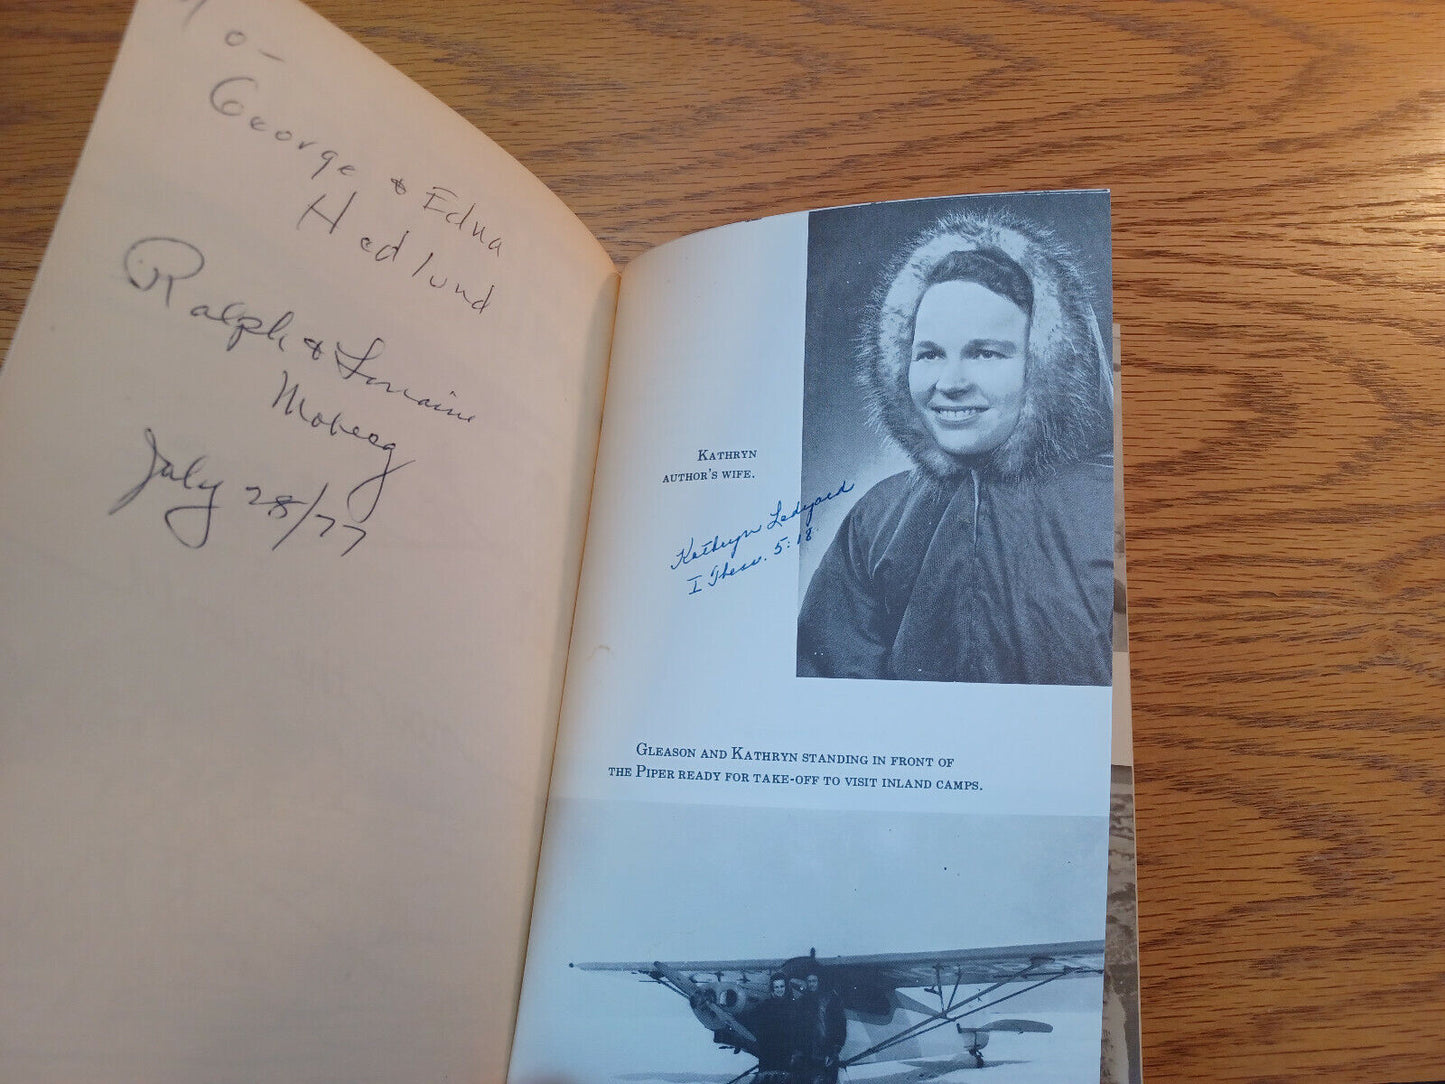 To-
George & Edna
Hedlund
Ralph & Lorraine
Moberg
July 28/77
KATHRYN
AUTHOR'S WIFE.
Kathryn Ledyard
I Thess. 5:18
GLEASON AND KATHRYN STANDING IN FRONT OF
THE PIPER READY FOR TAKE-OFF TO VISIT INLAND CAMPS.